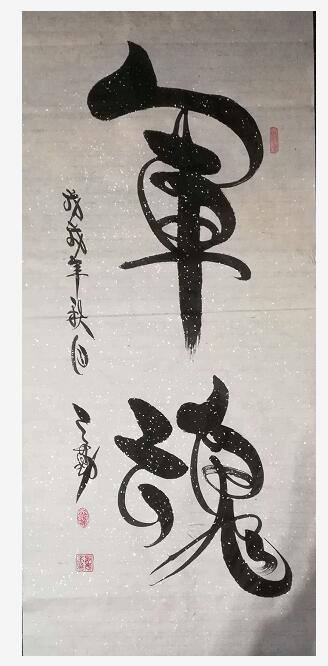 軍魂
戊戌年秋月